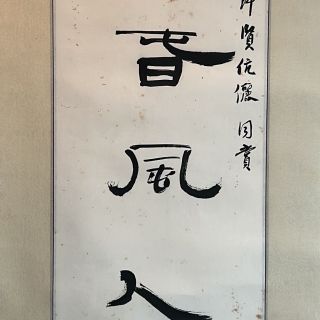 賢伉儷同賞
春風入